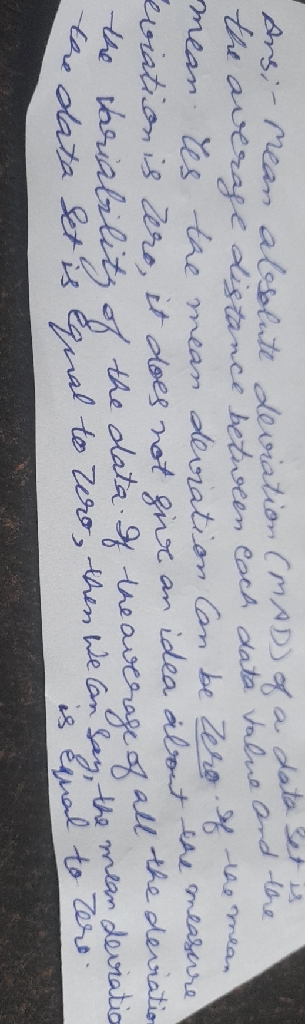 Ans:- Mean absolute deviation (MAD) of a data set is
the average distance between each data value and the
mean. Yes the mean deviation can be Zero. If the mean
deviation is Zero, it does not give an idea about the measure
the variability of the data. If the average of all the deviation
the data set is equal to Zero, then we can say, the mean deviation
is equal to Zero.